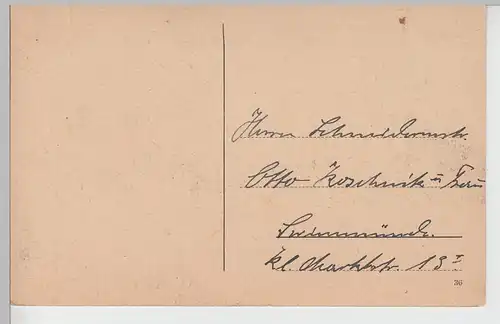 Herrn Schneidermstr.
Otto Koschnik u Frau
Swinemünde.
Kl. Marktstr. 13 I
36